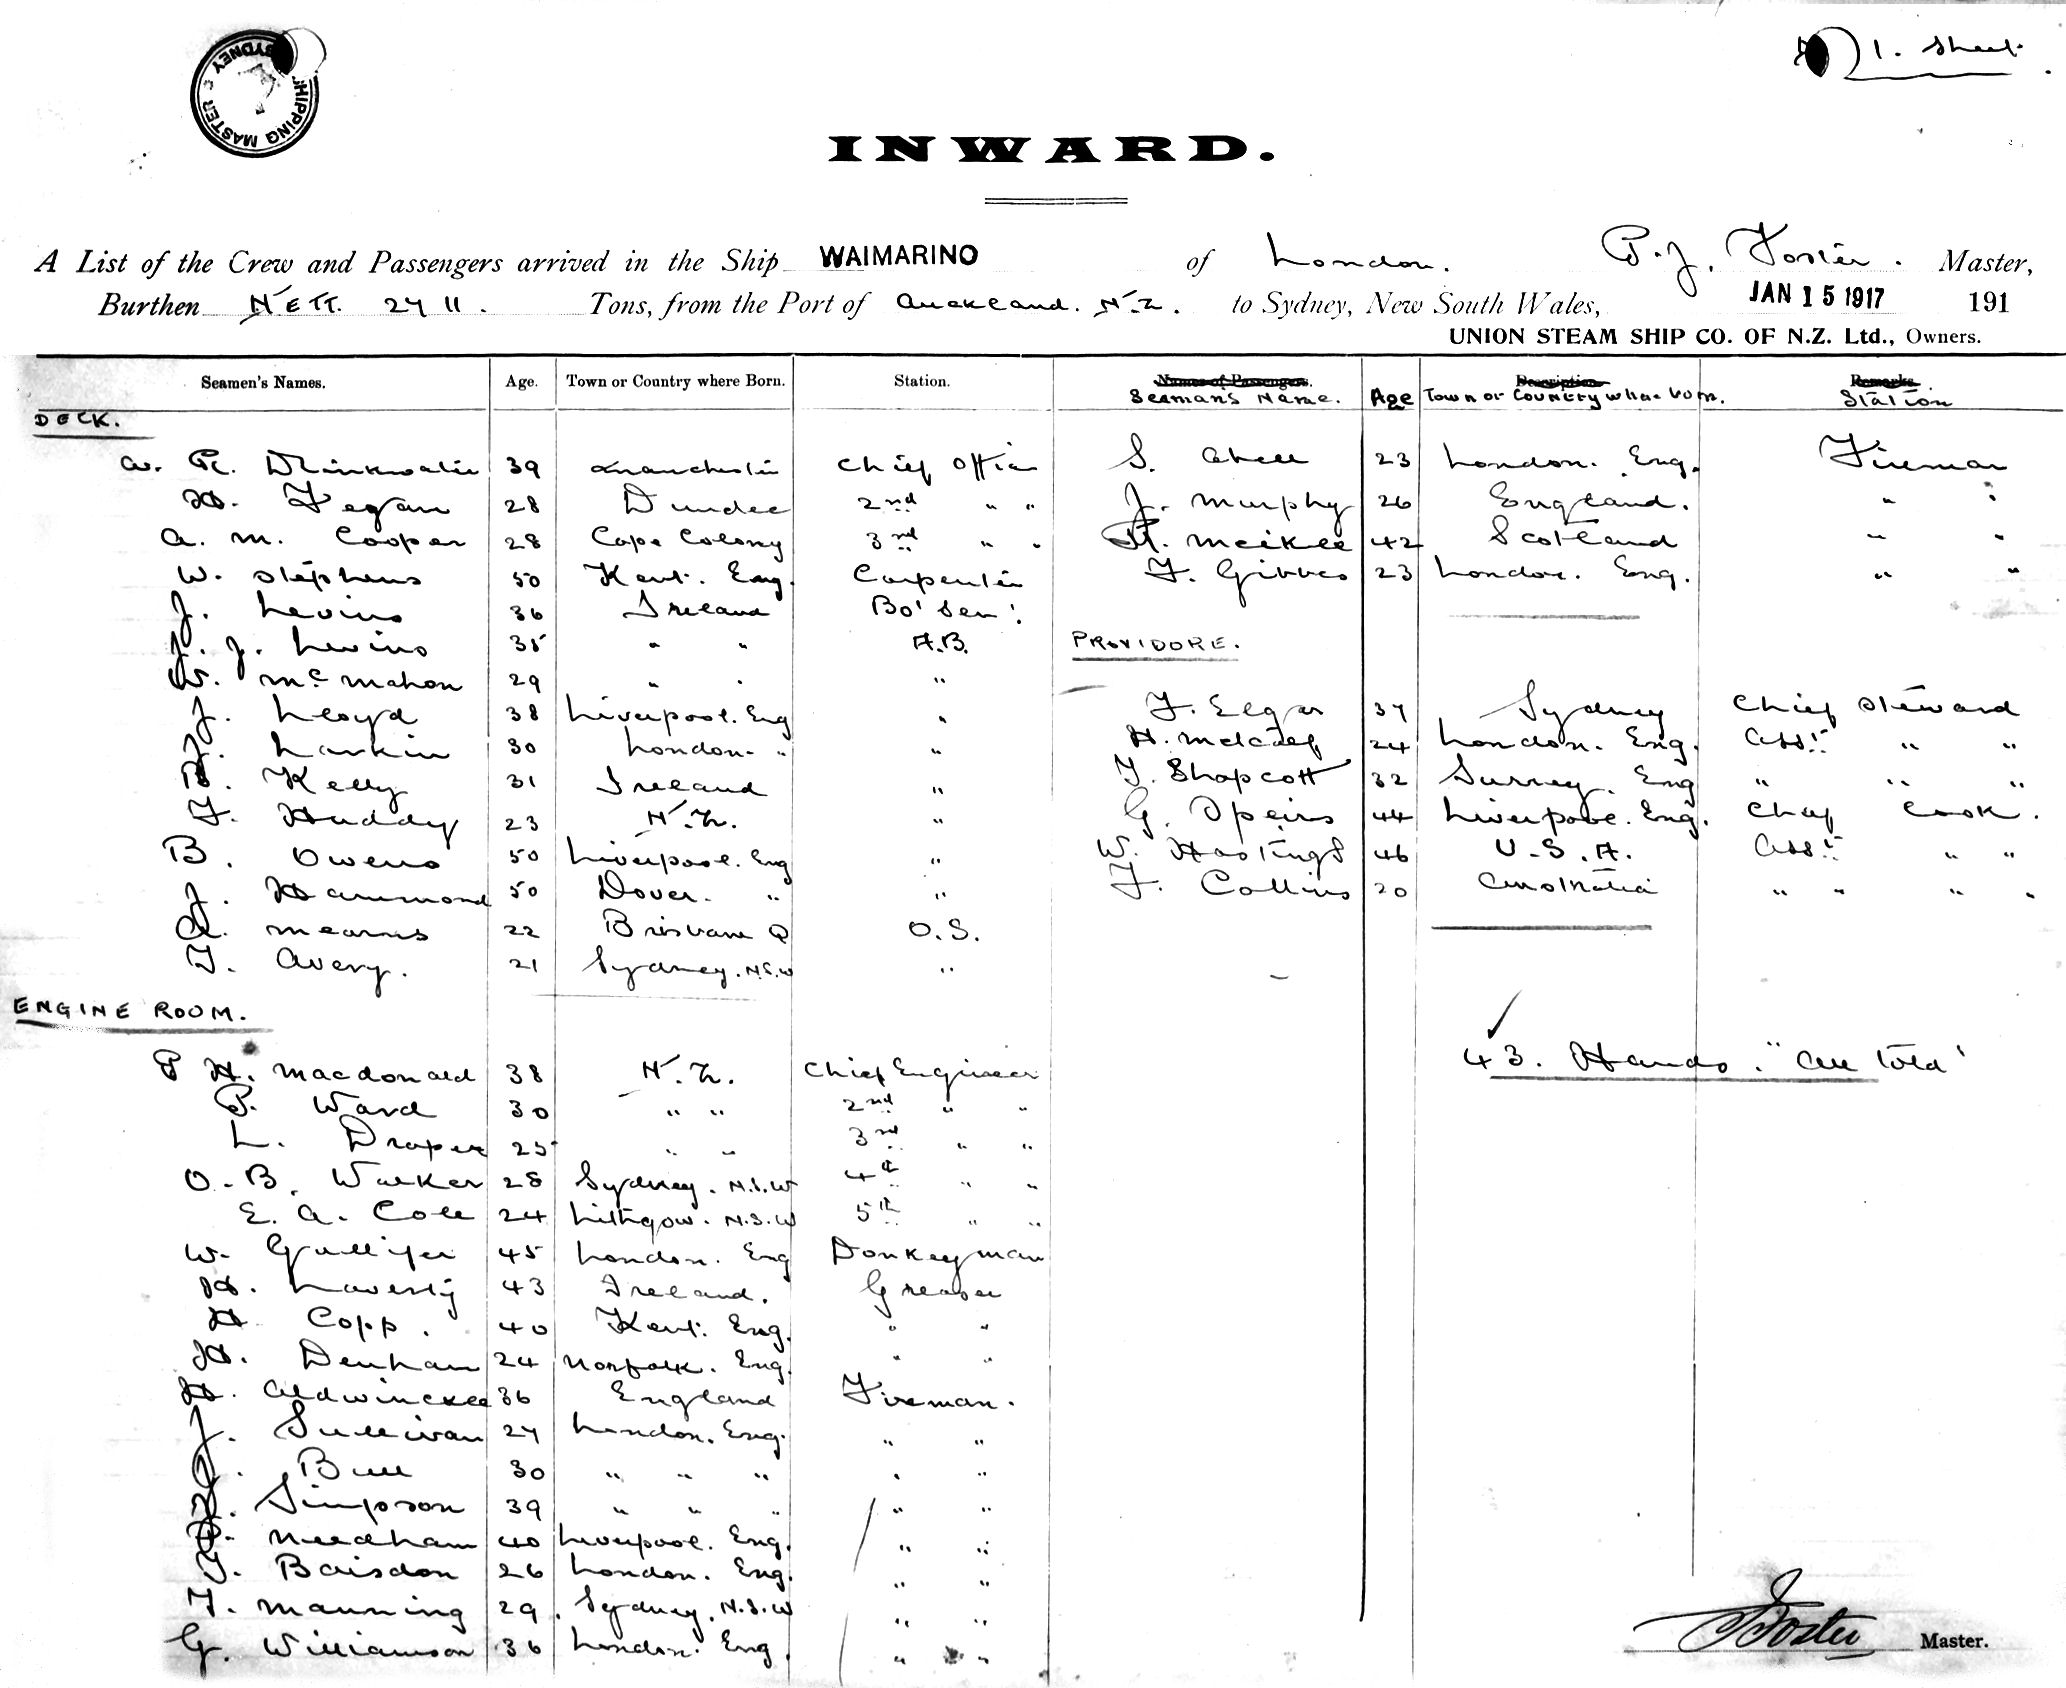 SHIPPING MASTER SYDNEY
1. Sheet
INWARD.
A List of the Crew and Passengers arrived in the Ship WAIMARINO of London. P. J. Foster. Master,
Burthen NETT. 2711. Tons, from the Port of Auckland. N.Z. to Sydney, New South Wales, JAN 15 1917 191
UNION STEAM SHIP CO. OF N.Z. Ltd., Owners.
Seamen's Names. Age. Town or Country where Born. Station.
DECK.
A. R. Drinkwater 39 Manchester Chief Officer
H. Fegan 28 Dundee 2nd " "
A. M. Cooper 28 Cape Colony 3rd " "
W. Stephens 50 Kent. Eng. Carpenter
J. Levins 36 Ireland Bo'sen!
J. J. Levins 35 " " A.B.
W. McMahon 29 " " "
J. Lloyd 38 Liverpool. Eng "
J. Larkin 30 London. " "
B. Kelly 31 Ireland "
F. Huddy 23 N.Z. "
B. Owens 50 Liverpool. Eng "
J. Hammond 50 Dover. " "
A. Mearns 22 Brisbane Q O.S.
F. Avery. 21 Sydney. N.S.W "
ENGINE ROOM.
P H. Macdonald 38 N.Z. Chief Engineer
P. Ward 30 " " 2nd " "
L. Draper 25 " " 3rd " "
O. B. Walker 28 Sydney. N.S.W 4th " "
E. A. Cole 24 Lithgow. N.S.W 5th " "
W. Gulliver 45 London. Eng Donkeyman
H. Laverty 43 Ireland. Greaser
H Copp. 40 Kent. Eng. " "
H. Denham 24 Norfolk. Eng. " "
H. Aldwinckle 36 England Fireman.
J. Sullivan 27 London. Eng. " "
J. Bull 30 " " " " "
Simpson 39 " " " " "
Needham 40 Liverpool. Eng. " "
T. Baisdon 26 London. Eng. " "
F. Manning 29. Sydney. N.S.W " "
G. Williamson 36 London. Eng. " "
Names of Passengers. Description Remarks
Seamans Name. Age Town or Country where born. Station
S. Abell 23 London. Eng. Fireman
J. Murphy 26 England. " "
R. Meikle 42 Scotland " "
F. Gibbes 23 London. Eng. " "
PROVIDORE.
F. Elgar 37 Sydney Chief Steward
H. Metcalf 24 London. Eng. Asst " "
F. Shapcott 32 Surrey. Eng " " "
G. Speirs 44 Liverpool. Eng. Chief Cook.
W. Hastings 46 U.S.A. Asst " "
F. Collins 20 Australia " " " "
43. Hands. "All told"
Foster Master.